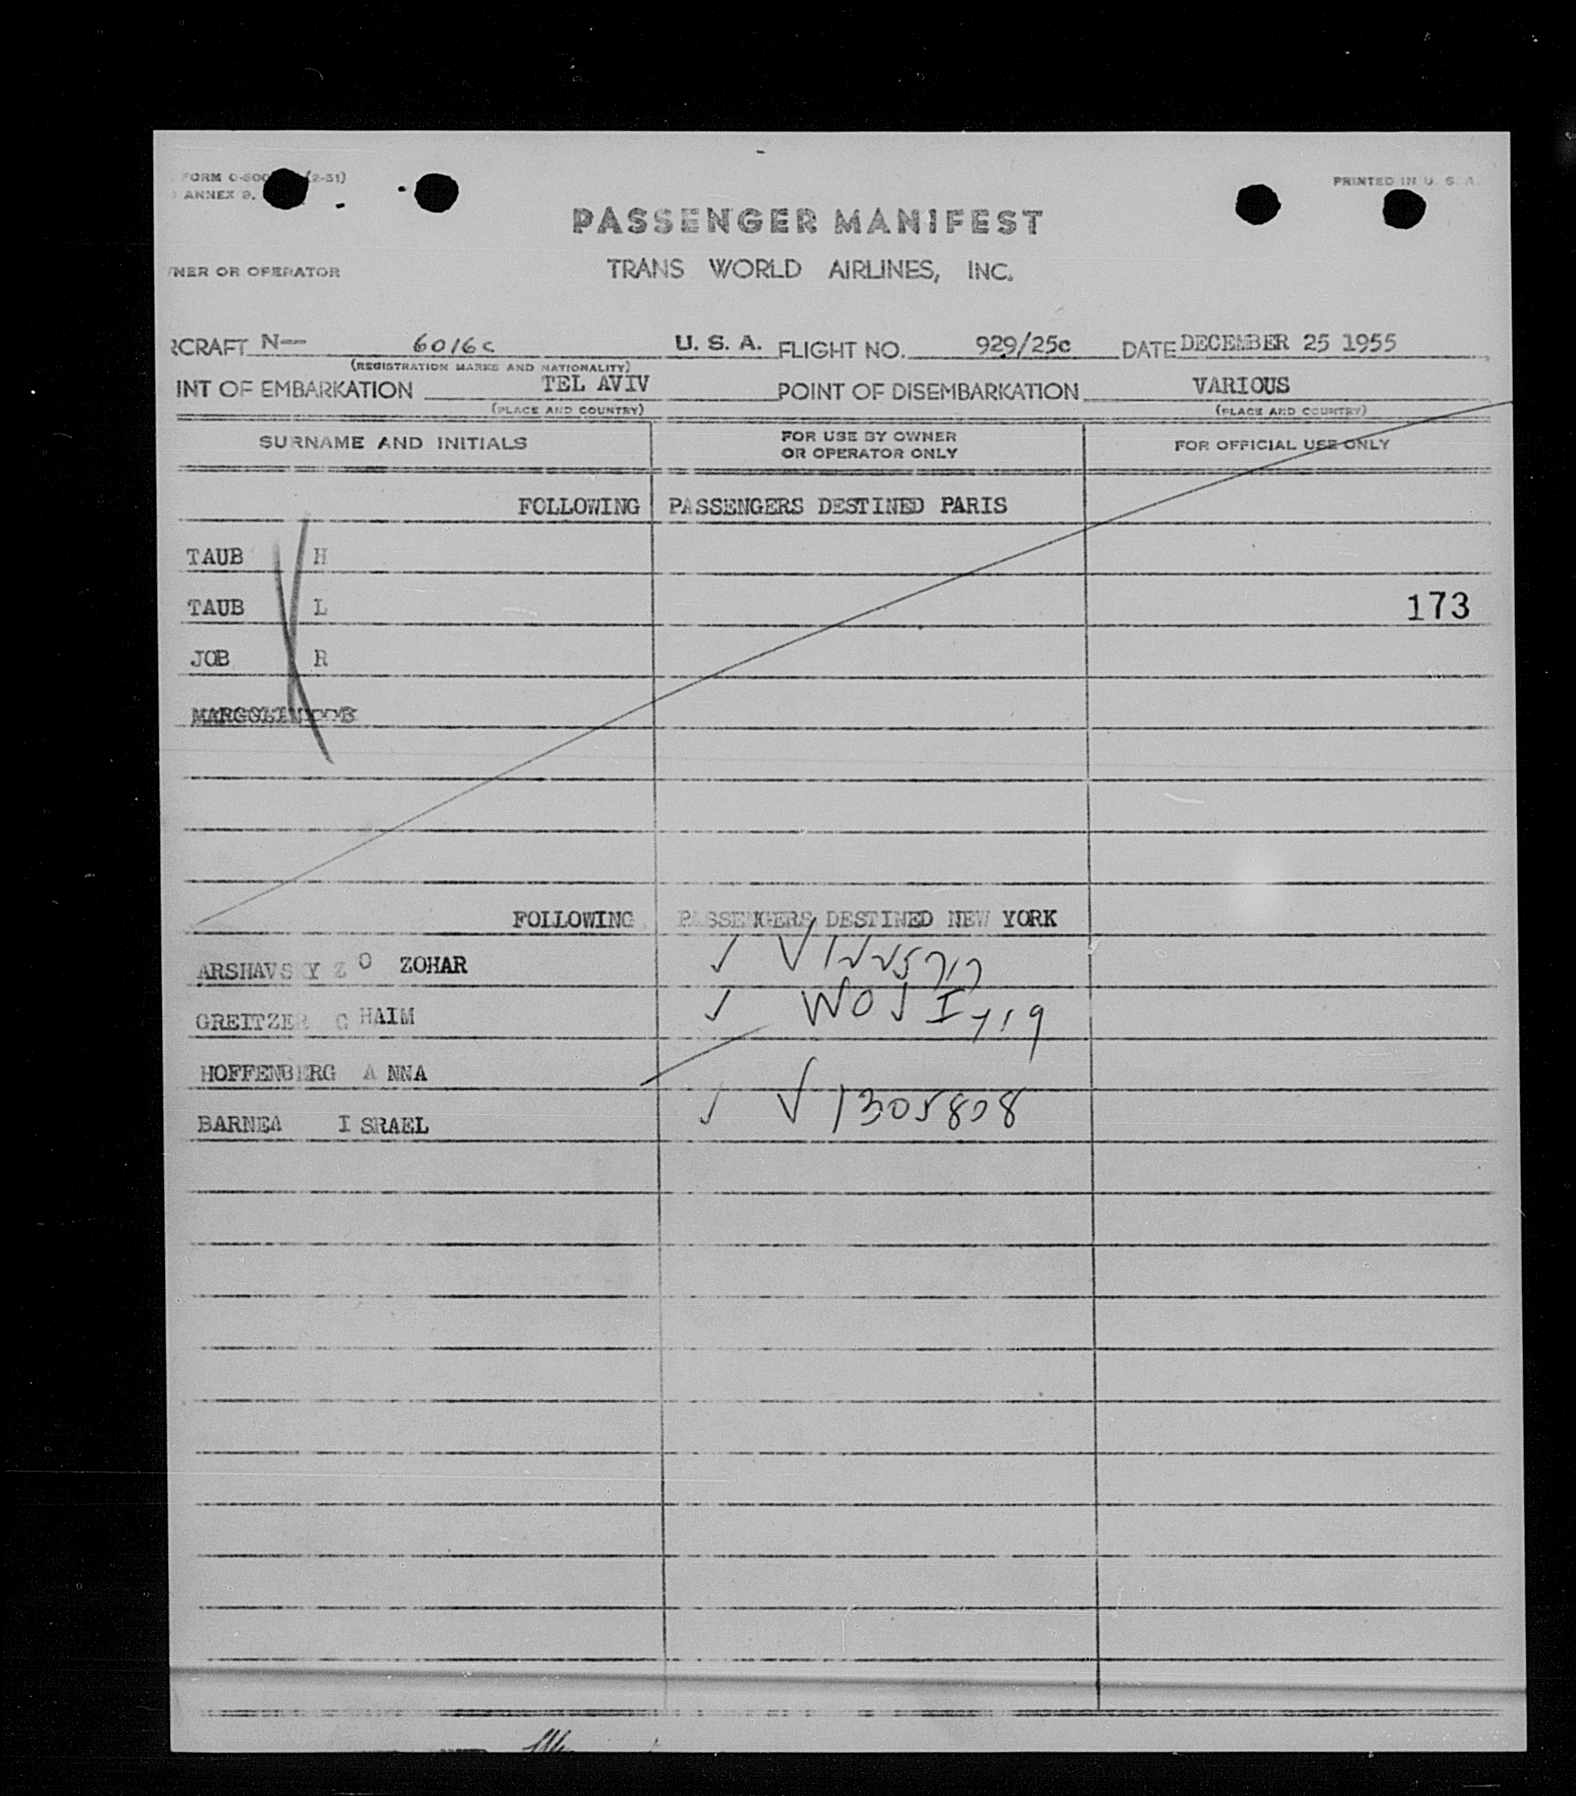 FORM O-500 (2-51)
ANNEX 9.
PRINTED IN U. S. A.
PASSENGER MANIFEST
NER OR OPERATOR
TRANS WORLD AIRLINES, INC.
RCRAFT N-- 6016C U. S. A. FLIGHT NO. 929/25c DATE DECEMBER 25 1955
(REGISTRATION MARKS AND NATIONALITY)
INT OF EMBARKATION TEL AVIV POINT OF DISEMBARKATION VARIOUS
(PLACE AND COUNTRY) (PLACE AND COUNTRY)
SURNAME AND INITIALS FOR USE BY OWNER OR OPERATOR ONLY FOR OFFICIAL USE ONLY
FOLLOWING PASSENGERS DESTINED PARIS
TAUB H
TAUB L
173
JOB R
MARGOLIN
FOLLOWING PASSENGERS DESTINED NEW YORK
ARSHAVSKY Z O ZOHAR V
GREITZER C HAIM
HOFFENBERG A NNA
BARNEA I SRAEL V 1305808